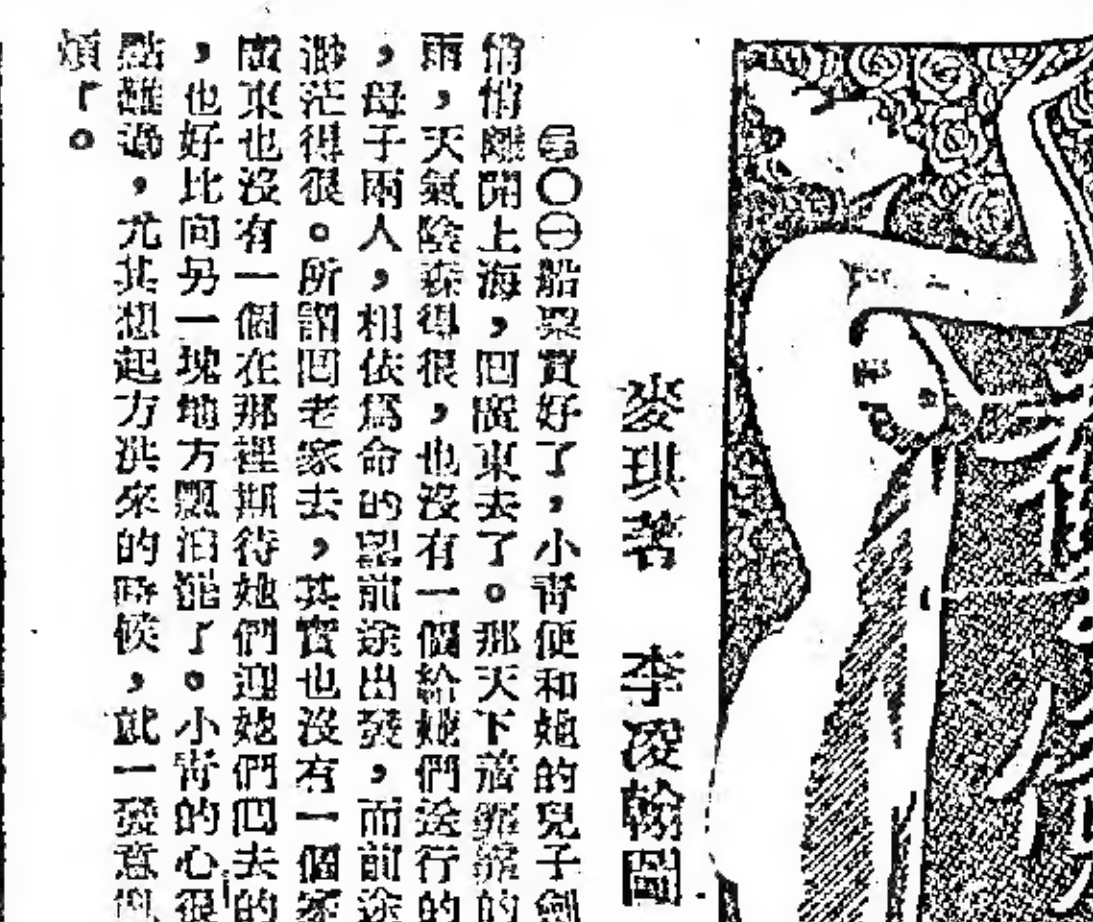 麥琪著　李凌翰圖
〇㊀船票買好了，小青便和她的兒子劍
悄悄離開上海，回廣東去了。那天下着霏霏的
雨，天氣陰森得很，也沒有一個給她們送行的
，母子兩人，相依爲命的望前途出發，而前途
渺茫得很。所謂回老家去，其實也沒有一個家
廣東也沒有一個在那裡期待她們迎她們回去的
，也好比向另一塊地方飄泊罷了。小青的心很
點難過，尤其想起方洪來的時候，就一發意亂
煩了。